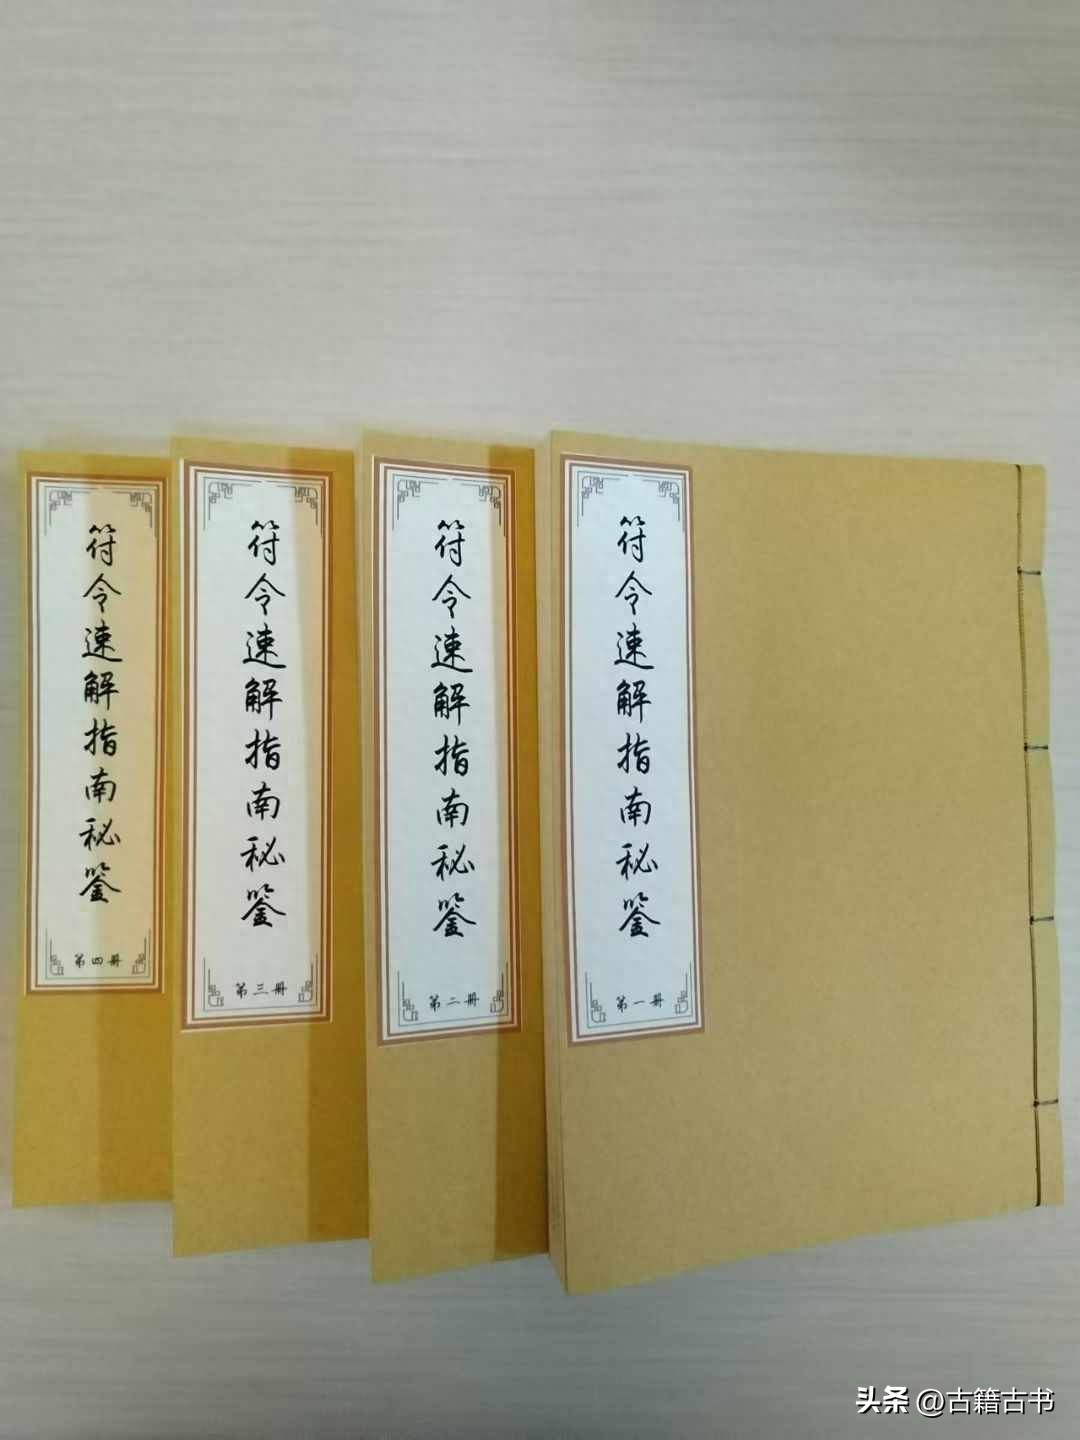 符令速解指南秘鉴
第一册
符令速解指南秘鉴
第二册
符令速解指南秘鉴
第三册
符令速解指南秘鉴
第四册
头条 @古籍古书